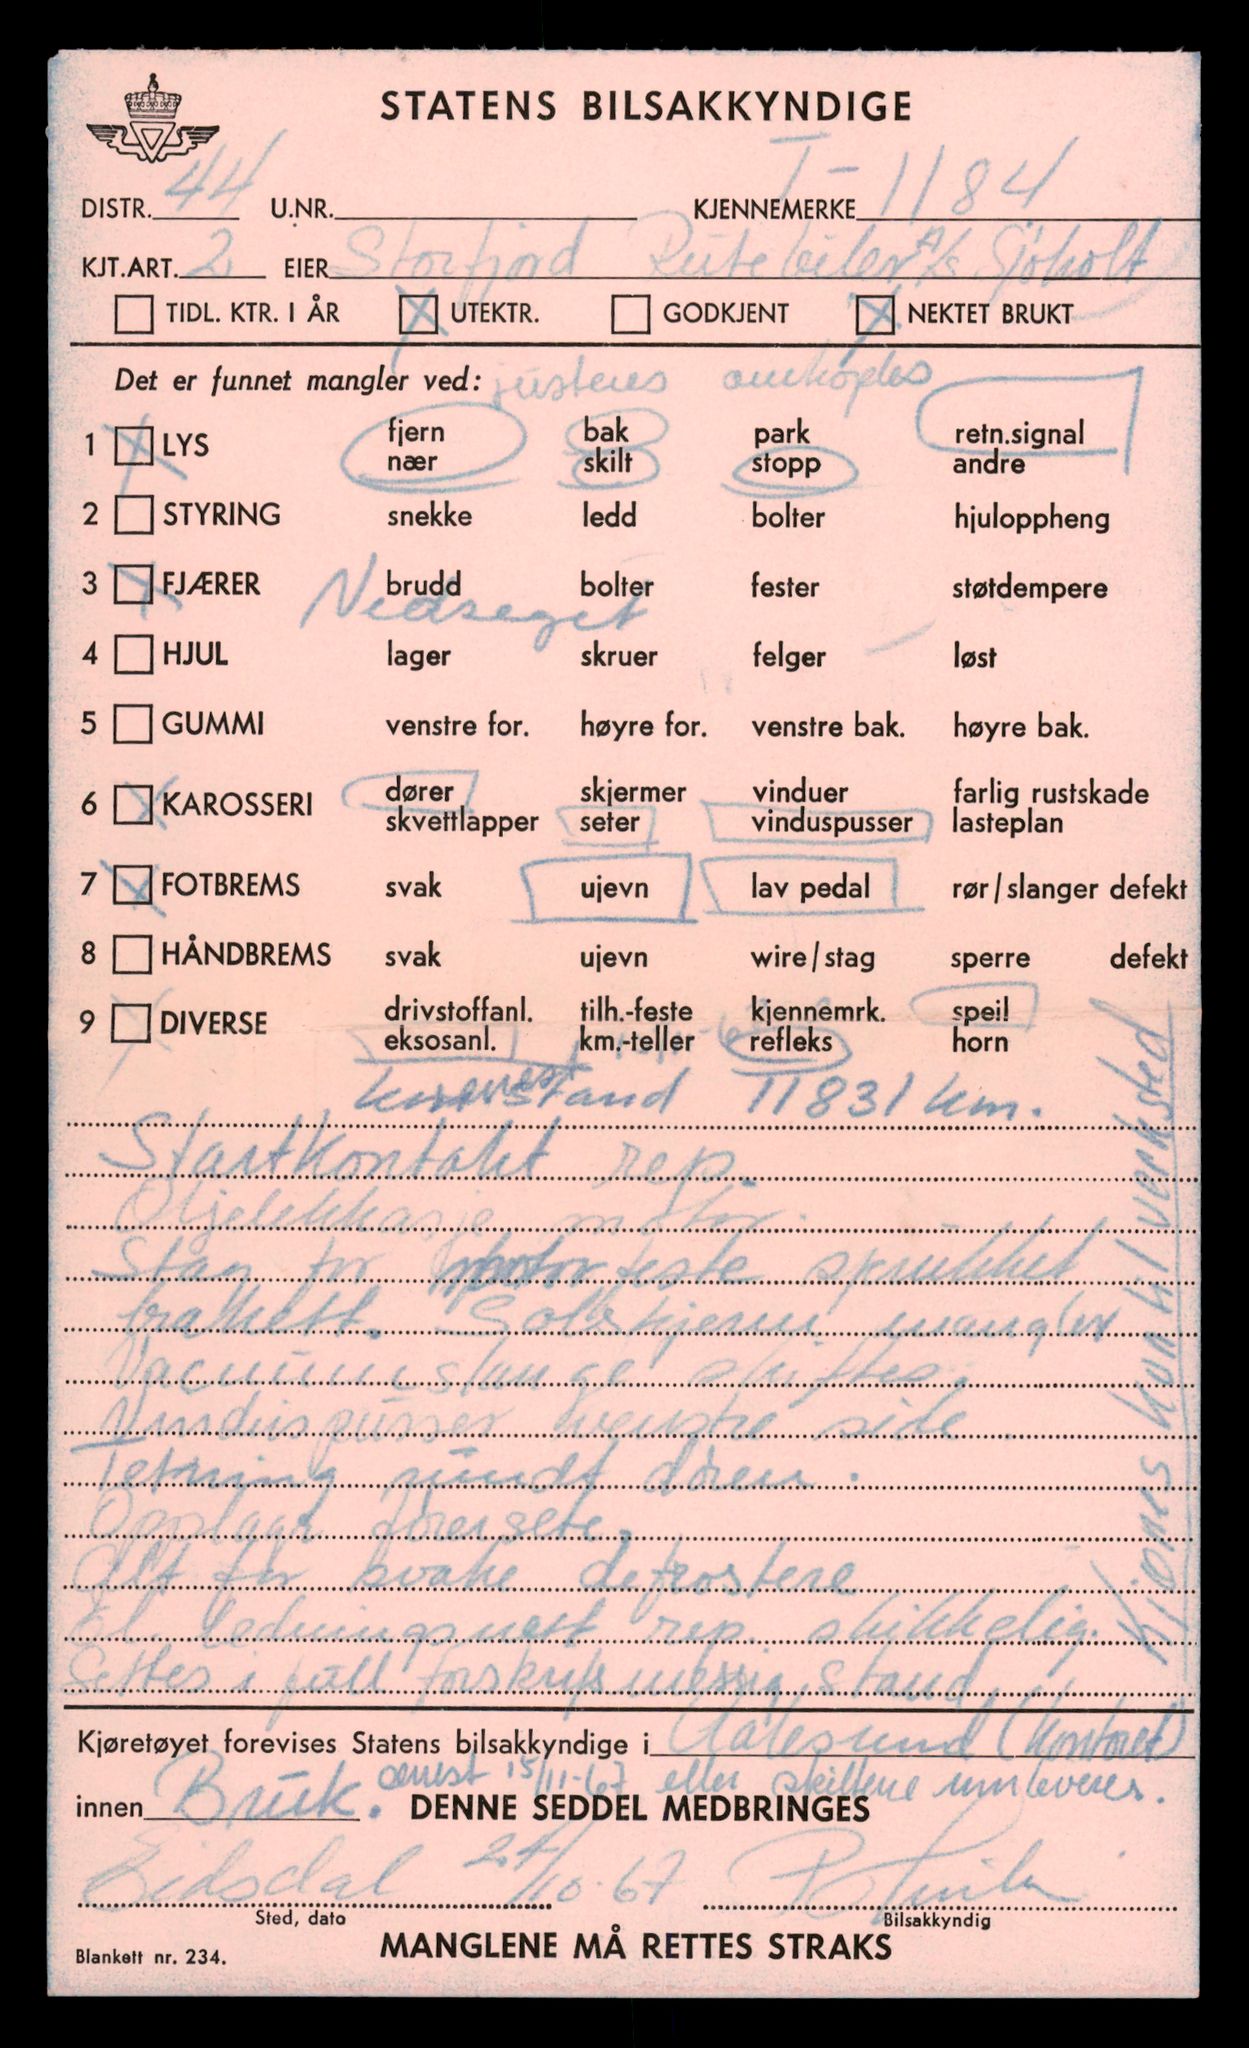 STATENS BILSAKKYNDIGE
DISTR. 44 U.NR. KJENNEMERKE T-1184
KJT.ART. 2 EIER Storfjord Rutebiler A/S Sjøholt
TIDL. KTR. I ÅR UTEKTR. GODKJENT NEKTET BRUKT
Det er funnet mangler ved: justeres
1 LYS fjern bak park retn.signal
nær skilt stopp andre
2 STYRING snekke ledd bolter hjuloppheng
3 FJÆRER brudd bolter fester støtdempere
Nedseget
4 HJUL lager skruer felger løst
5 GUMMI venstre for. høyre for. venstre bak. høyre bak.
6 KAROSSERI dører skjermer vinduer farlig rustskade
skvettlapper seter vinduspusser lasteplan
7 FOTBREMS svak ujevn lav pedal rør/slanger defekt
8 HÅNDBREMS svak ujevn wire/stag sperre defekt
9 DIVERSE drivstoffanl. tilh.-feste kjennemrk. speil
eksosanl. km.-teller refleks horn
stand 11831 km.
Startkontakt rep.
Oljelekkasje motor.
Stag for feste sprukket
brakett. Solskjerm mangler
Vacuumslange skiftes.
Vinduspusser venstre side.
Tetning rundt døren.
Opplagr førersete.
Alt for svake defrostere
El. ledningsnett rep. skikkelig.
Settes i full forskrifsmessig stand.
Kjøres kun til verksted
Kjøretøyet forevises Statens bilsakkyndige i Aalesund (kontoret)
senest 15/11-67 eller skiltene innleveres.
innen Bruk. DENNE SEDDEL MEDBRINGES
Eidsdal 24/10-67
Sted, dato Bilsakkyndig
Blankett nr. 234. MANGLENE MÅ RETTES STRAKS